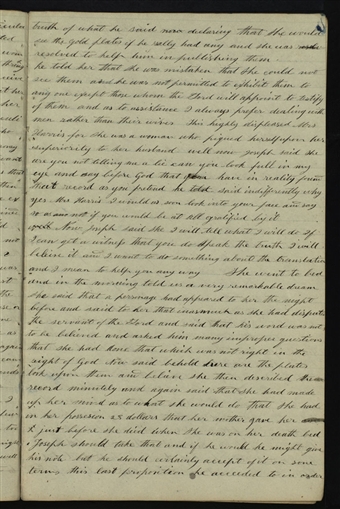 truth of what he said now declaring that she would
see the gold plates if he really had any and she was
resolved to help him in publishing them
he told her that she was mistaken that she could not
see them as he was not permitted to exhibit them to
any one except those whom the Lord will appoint to testify
of them and as to assistance I always prefer dealing with
men rather than their wives This highly displeased Mrs
Harris for she was a woman who piqued herself upon her
superiority to her husband well now Joseph said she
are you not telling me a lie can you look full in my
eye and say before God that you have in reality found
record as you pretend he told said indifferently why
yes Mrs Harris I would as soon look into your face and say
so as not if you would be at all gratified by it
Now Joseph said she I will tell what I will do If
I can get a witness that you do speak the truth I will
believe it and I want to do something about the translation
and I mean to help you any way She went to bed
and in the morning told us a very remarkable dream
She said that a personage had appeared to her the night
before and said to her that inasmuch as she had disputed
the servant of the Lord and said that his word was not
to be believed and asked him many improper questions
that she had done that which was not right in the
sight of God now said behold here are the plates
look upon them and believe she then described the
record minutely and again said that she had made
up her mind as to what she would do that she had
in her possesion 28 dollars that her mother gave her
just before she died when she was on her death bed
Joseph should take that and if he would he might give
his note but he should certainly accept of it on some
terms this last proposition he acceeded to in order